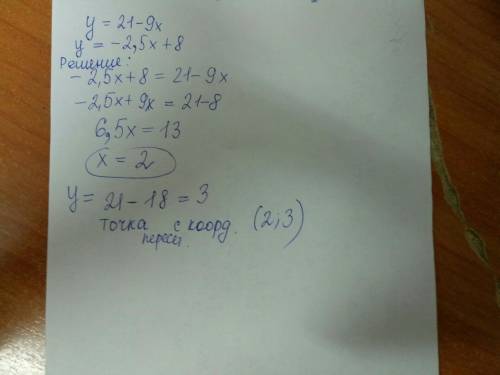 y = 21-9x
y = -2,5x+8
Решение:
-2,5x+8 = 21-9x
-2,5x+9x = 21-8
6,5x = 13
x = 2
y = 21-18 = 3
точка пересеч. с коорд. (2;3)